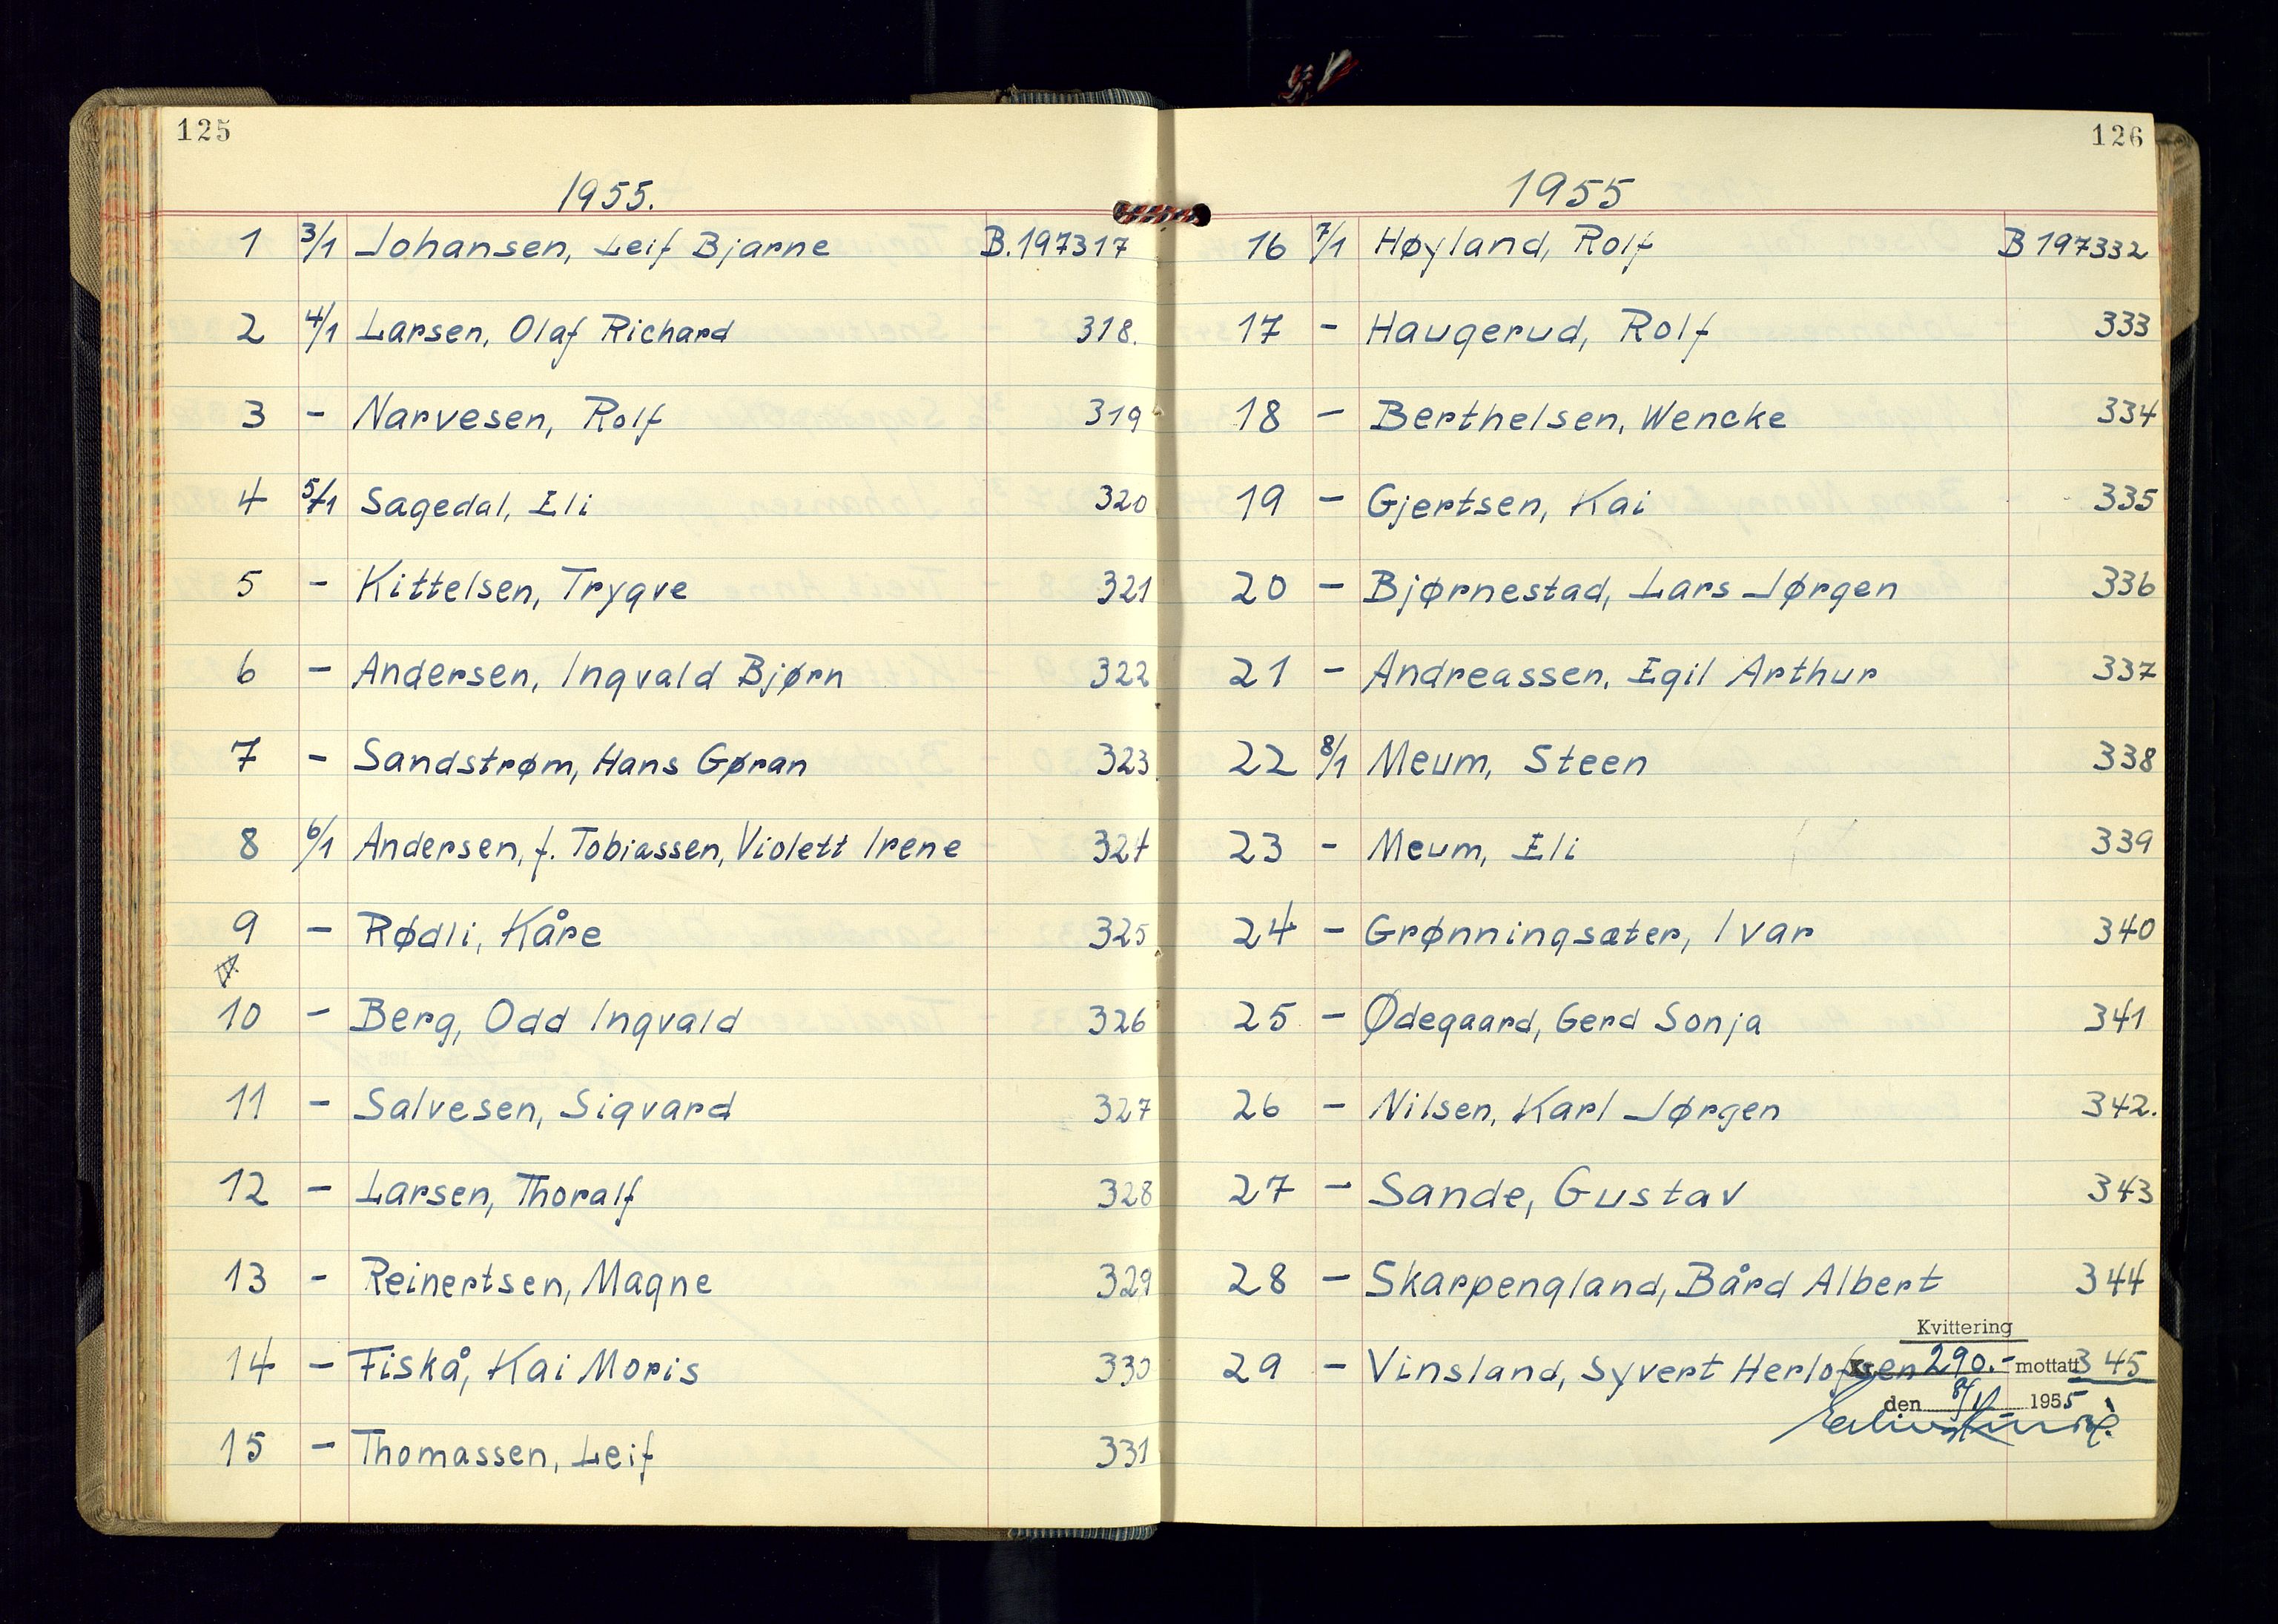 125
1955.
1 3/1 Johansen, Leif Bjarne B.197317
2 4/1 Larsen, Olaf Richard 318.
3 - Narvesen, Rolf 319
4 5/1 Sagedal, Eli 320
5 - Kittelsen, Trygve 321
6 - Andersen, Ingvald Bjørn 322
7 - Sandstrøm, Hans Gøran 323
8 6/1 Andersen, f. Tobiassen, Violett Irene 324
9 - Rødli, Kåre 325
10 - Berg, Odd Ingvald 326
11 - Salvesen, Sigvard 327
12 - Larsen, Thoralf 328
13 - Reinertsen, Magne 329
14 - Fiskå, Kai Moris 330
15 - Thomassen, Leif 331
126
1955
16 7/1 Høyland, Rolf B 197332
17 - Haugerud, Rolf 333
18 - Berthelsen, Wencke 334
19 - Gjertsen, Kai 335
20 - Bjørnestad, Lars Jørgen 336
21 - Andreassen, Egil Arthur 337
22 8/1 Meum, Steen 338
23 - Meum, Eli 339
24 - Grønningsæter, Ivar 340
25 - Ødegaard, Gerd Sonja 341
26 - Nilsen, Karl Jørgen 342.
27 - Sande, Gustav 343
28 - Skarpengland, Bård Albert 344
Kvittering
29 - Vinsland, Syvert Herlofsen 345
Kr. 290.- mottatt
den 8/1 1955